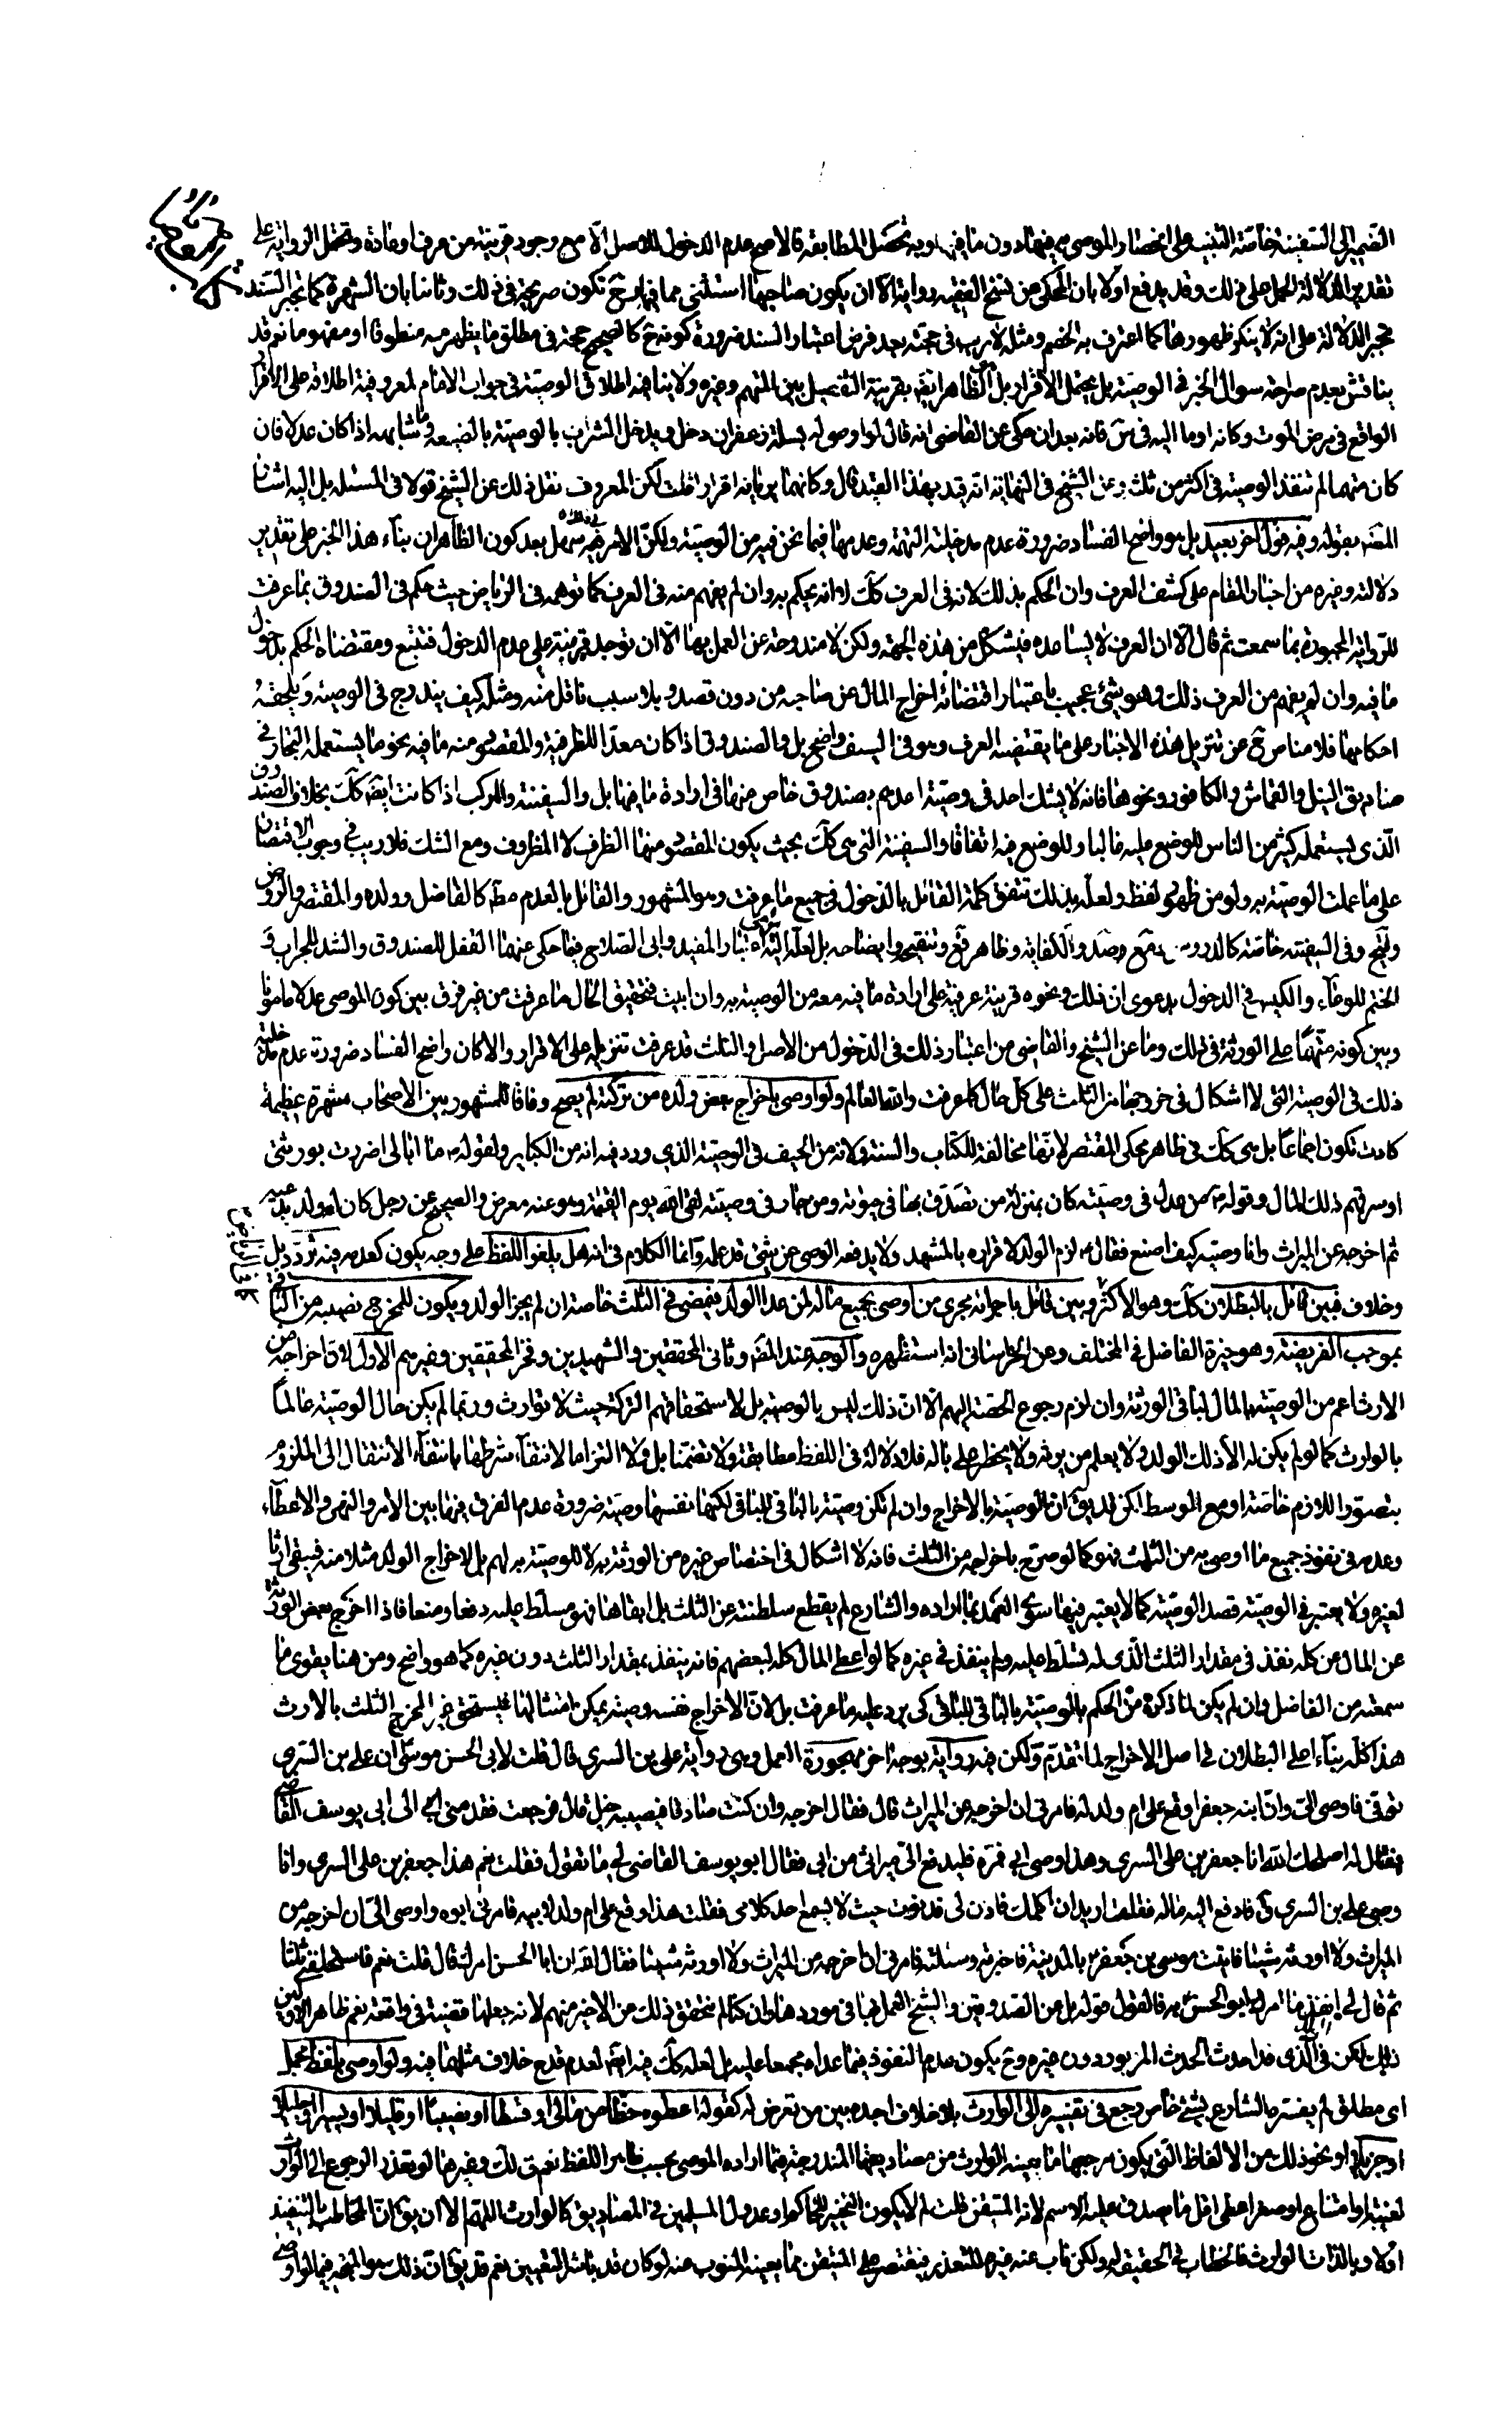 الضمير الى السفينة خاصة التنبيه على انحصار الموصى به فيها دون ما فيها وبه تحصل المطابقة فالاصح عدم الدخول للاصل الا مع وجود قرينة من عرف او عادة وتحمل الرواية على
تقدير الدلالة الحمل على ذلك وقد يدفع اولا بان المحكى من نسخ الفقيه رواية الا ان يكون صاحبها استثنى مما فيها وح تكون صريحة في ذلك وثانيا بان الشهرة كما تجبر السند
تجبر الدلالة على انه لا ينكر ظهورها كما اعترف به الخصم ومثله لا ريب في حجته بعد فرض اعتبار السند ضرورة كونه ح كالصحيح حجة في مطلق ما يظهر منه منطوقا او مفهوما نعم قد
يناقش بعدم صراحة سوال الخبر في الوصية بل يحتمل الاقرار بل الظاهر ايضا بقرينة التفصيل بين المتهم وغيره ولا ينافيه اطلاق الوصية في جواب الامام لمعروفية اطلاقه على الاقرار
الواقع في مرض الموت وكانه اوما اليه في س فانه بعد ان حكى عن القاضى انه قال لو اوصى له بسلة زعفران دخل ويدخل الشراب بالوصية بالضيعة وما شابهه اذا كان عدلا فان
كان متهما لم تنفذ الوصية في اكثر من ثلث وعن الشيخ في النهاية انه قيد بهذا القيد قال وكانهما يريانه اقرارا قلت لكن المعروف نقل ذلك عن الشيخ قولا في المسئلة بل اليه اشار
المص بقوله وفيه قول اخر بعيد بل هو واضح الفساد ضرورة عدم مدخلية التهمة وعدمها فيما نحن فيه من الوصية ولكن الامر فيه سهل بعد كون الظاهر ان بناء هذا الخبر على تقدير
دلالته وغيره من اخبار المقام على كشف العرف وان الحكم بذلك لانه في العرف كك لا انه يحكم به وان لم يفهم منه في العرف كما توهمه في الرياض حيث حكم في الصندوق بما عرفت
للرواية المجبورة بما سمعت ثم قال الا ان العرف لا يساعده فيشكل من هذه الجهة ولكن لا مندوحة عن العمل بها الا ان توجد قرينة على عدم الدخول فتتبع ومقتضاه الحكم بدخول
ما فيه وان لم يفهم من العرف ذلك وهو شئ عجيب باعتبار اقتضائه اخراج المال عن صاحبه من دون قصد وبلا سبب ناقل منه ومثله كيف يندرج في الوصية ويلحقه
احكامها فلا مناص ح عن تنزيل هذه الاخبار على ما يقتضيه العرف وهو في السيف واضح بل والصندوق اذا كان معدا للظرفية والمقصود منه ما فيه نحو ما يستعمله التجار في
صناديق النيل والقماش والكافور ونحوها فانه لا يشك احد في وصية احدهم بصندوق خاص منها في ارادة ما فيها بل والسفينة والمركب اذا كانت ايضا كك بخلاف الصندوق
الذى يستعمله كثير من الناس للوضع عليه غالبا وللوضع فيه اتفاقا والسفينة التى هى كك بحيث يكون المقصود منها الظرف لا المظروف ومع الشك فلا ريب في وجوب الاقتصار
على ما علمت الوصية به ولو من ظهور لفظ ولعله بذلك تتفق كلمة القائل بالدخول في جميع ما عرفت وهو المشهور والقائل بالعدم مط كالفاضل وولده والمقتصر والروض
ولنج وفي السفينة خاصة كالدروس ومع وصد والكفاية وظاهر يع وتنقيح وايضاحه بل لعله اليه يرمى اعتبار المفيد وابى الصلاح فيما حكى عنهما القفل للصندوق والشد للجراب و
الختم للوعاء والكيس في الدخول بدعوى ان ذلك ونحوه قرينة عرفية على ارادة ما فيه معه من الوصية به وان ابيت فتحقيق الحال ما عرفت من غير فرق بين كون الموصى عدلا مامونا
وبين كونه متهما على الورثة في ذلك وما عن الشيخ والقاضى من اعتبار ذلك في الدخول من الاصل والثلث قد عرفت تنزيله على الاقرار والا كان واضح الفساد ضرورة عدم مدخلية
ذلك في الوصية التى لا اشكال في خروجها من الثلث على كل حال كما عرفت والله العالم ولو اوصى باخراج بعض ولده من تركته لم يصح وفاقا للمشهور بين الاصحاب شهرة عظيمة
كادت تكون اجماعا بل هى كك في ظاهر محكى المقتصر لانها مخالفة للكتاب والسنة ولانه من الحيف في الوصية الذي ورد فيه انه من الكباير ولقوله ع ما ابالى اضررت بورثتى
او سرقتهم ذلك المال وقوله ع من عدل في وصيته كان بمنزلة من تصدق بها في حيوته ومن جار في وصيته لقى الله يوم القيمة وهو عنه معرض والصحيح عن رجل كان له ولد يدعيه
ثم اخرجه عن الميراث وانا وصيه كيف اصنع فقال ع لزم الولد لاقراره بالمشهد ولا يدفعه الوصى عن شئ قد علمه وانما الكلام في انه هل يلغو اللفظ على وجه يكون كعدمه فيه تردد بل
وخلاف فبين قائل بالبطلان كك وهو الاكثر وبين قائل باجرائه مجرى من اوصى بجميع ماله لمن عدا الولد فتمضى في الثلث خاصة ان لم يجز الولد ويكون للمخرج نصيبه من الباقى
بموجب الفريضة وهو خيرة الفاضل في المختلف وعن الخراسانى انه استظهره والوجه عند المص وثانى المحققين والشهيدين وفخر المحققين وغيرهم الاول لان اخراجه من
الارث اعم من الوصية بالمال لباقى الورثة وان لزم رجوع الحصة اليهم الا ان ذلك ليس بالوصية بل لاستحقاقهم التركة حيث لا توارث وربما لم يكن حال الوصية عالما
بالوارث كما لو لم يكن له الا ذلك الولد ولا يعلم من يرثه ولا يخطر على باله فلا دلالة في اللفظ مطابقة ولا تضمنا بل ولا التزاما لانتفاء شرطها بانتفاء الانتقال الى الملزوم
بتصور اللازم خاصة او مع الوسط لكن قد يق ان الوصية بالاخراج وان لم تكن وصية بالباقى للباقى لكنها نفسها وصية ضرورة عدم الفرق فيها بين الامر والنهى والاعطاء
وعدمه في نفوذ جميع ما اوصى به من الثلث فهو كما لو صرح باخراجه من الثلث فانه لا اشكال في اختصاص غيره من الورثة به لا للوصية به لهم بل لاخراج الولد مثلا منه فيبقى ارثا
لغيره ولا يعتبر في الوصية قصد الوصية كما لا يعتبر فيها سوى العهد بما اراده والشارع لم يقطع سلطنته عن الثلث بل ابقاها فهو مسلط عليه دفعا ومنعا فاذا اخرج بعض الورثة
عن المال من كله نفذ في مقدار الثلث الذى له تسلط عليه ولم ينفذ في غيره كما لو اعطى المال كله لبعضهم فانه ينفذ بمقدار الثلث دون غيره كما هو واضح ومن هنا يقوى ما
سمعته من الفاضل وان لم يكن لما ذكره من الحكم بالوصية بالباقى للباقى كى يرد عليه ما عرفت بل لان الاخراج نفسه وصية يمكن امتثالها فيستحق غير المخرج الثلث بالارث
هذا كله بناء على البطلان في اصل الاخراج لما تقدم ولكن فيه رواية بوجه اخر مهجورة العمل وهى رواية على بن السرى قال قلت لابى الحسن موسى ع ان على بن السرى
توفى فاوصى الى وان ابنه جعفرا وقع على ام ولد له فامرنى ان اخرجه من الميراث قال فقال اخرجه وان كنت صادقا فيصيبه خبل قال فرجعت فقدمنى الى ابى يوسف القاضى
فقال له اصلحك الله انا جعفر بن على السرى وهذا وصى ابى فمره فليدفع الى ميراثى من ابى فقال ابو يوسف القاضى لى ما تقول فقلت نعم هذا جعفر بن على السرى وانا
وصى على بن السرى ق فادفع اليه ماله فقلت اريد ان اكلمك فادن لى فدنوت حيث لا يسمع احد كلامى فقلت هذا وقع على ام ولد لابيه فامرنى ابوه واوصى الى ان اخرجه من
الميراث ولا اورثه شيئا فاتيت موسى بن جعفر ع بالمدينة فاخبرته وسئلته فامرنى ان اخرجه من الميراث ولا اورثه شيئا فقال الله ان ابا الحسن امرك قال قلت نعم فاستحلفنى ثلثا
ثم قال لى انفذ ما امرك ابو الحسن ع به فالقول قوله بل عن الصدوقين والشيخ العمل بها في موردها وان كنا لم نتحقق ذلك من الاخير منهم لانه جعلها قضية في واقعة نعم ظاهر الاولين
ذلك لكن في الذى قد احدث الحدث المزبور دون غيره وح يكون عدم النفوذ فيما عداه مجمعا عليه بل لعله كك فيه ايضا لعدم قدح خلاف مثلهما فيه ولو اوصى بلفظ مجمل
اى مطلق لم يفسره الشارع بشئ خاص رجع في تفسيره الى الوارث بلا خلاف اجده بين من تعرض له كقوله اعطوه حظا من مالى او قسطا او نصيبا او قليلا او يسيرا او جليلا
او جزيلا او نحو ذلك من الالفاظ التى يكون مرجعها ما يعينه الوارث من مصاديقها المندرجة فيما اراده الموصى بحسب ظاهر اللفظ نعم في لك وغيرها لو تعذر الرجوع الى الوارث
لغيبة او امتناع او صغر اعطى اقل ما يصدق عليه الاسم لانه المتيقن قلت لم لا يكون التخيير للحاكم او عدول المسلمين في المصاديق كالوارث اللهم الا ان يق ان المخاطب بالتنفيذ
اولا وبالذات الوارث فالخطاب في الحقيقة له ولكن ناب عنه غيره للتعذر فيقتصر على المتيقن مما يعينه المنوب عنه لو كان قد باشر التعيين نعم قد يق ان ذلك هو المتجه فيما لو اوصى